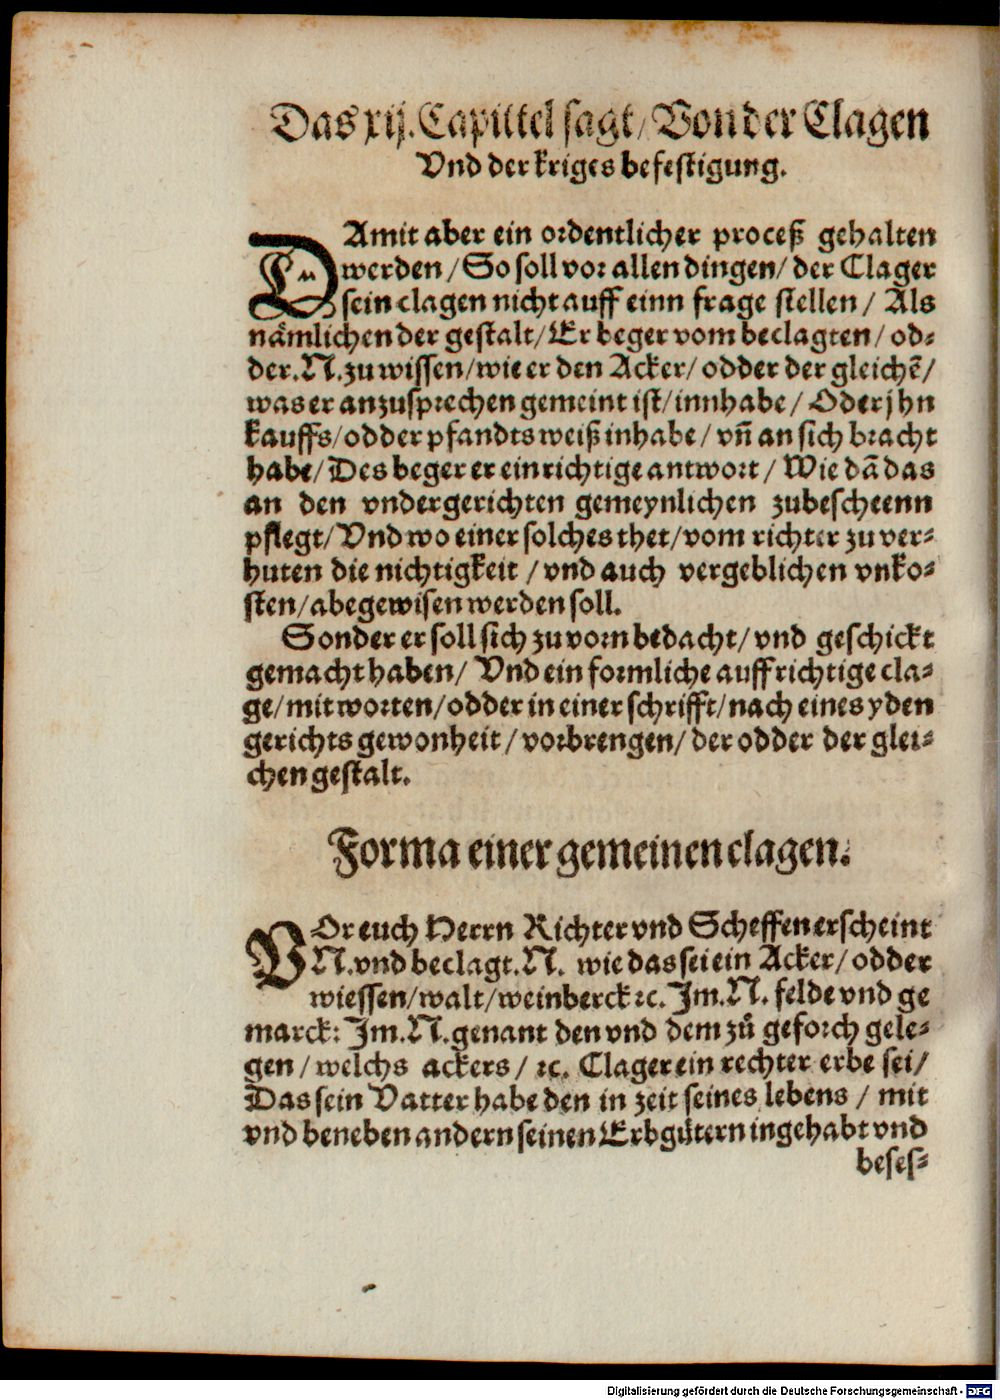 Das xij. Capittel sagt/ Von der Clagen
Vnd der kriges befestigung.
DAmit aber ein ordentlicher proceß gehalten
werden / So soll vor allen dingen/ der Clager
sein clagen nicht auff einn frage stellen / Als
nämlichen der gestalt/ Er beger vom beclagten/ od⸗
der. N. zu wissen/ wie er den Acker/ odder der gleichē/
was er anzusprechen gemeint ist/ innhabe / Oder jhn
kauffs/ odder pfandts weiß inhabe / vñ an sich bracht
habe/ Des beger er ein richtige antwort / Wie dā das
an den vndergerichten gemeynlichen zubescheenn
pflegt/ Vnd wo einer solches thet/ vom richter zu ver⸗
huten die nichtigkeit / vnd auch vergeblichen vnko⸗
sten/ abegewisen werden soll.
Sonder er soll sich zu vorn bedacht/ vnd geschickt
gemacht haben/ Vnd ein formliche auffrichtige cla⸗
ge/ mit worten/ odder in einer schrifft/ nach eines yden
gerichts gewonheit / vorbrengen/ der odder der glei⸗
chen gestalt.
Forma einer gemeinen clagen.
VOr euch Herrn Richter vnd Scheffen erscheint
N. vnd beclagt. N. wie das sei ein Acker/ odder
wiessen/ walt/ weinberck ꝛc. Jm. N. felde vnd ge
marck: Jm. N. genant den vnd dem zů geforch gele⸗
gen / welchs ackers / ꝛc. Clager ein rechter erbe sei/
Das sein Vatter habe den in zeit seines lebens / mit
vnd beneben andern seinen Erbgütern ingehabt vnd
beses⸗
Digitalisierung gefördert durch die Deutsche Forschungsgemeinschaft - DFG